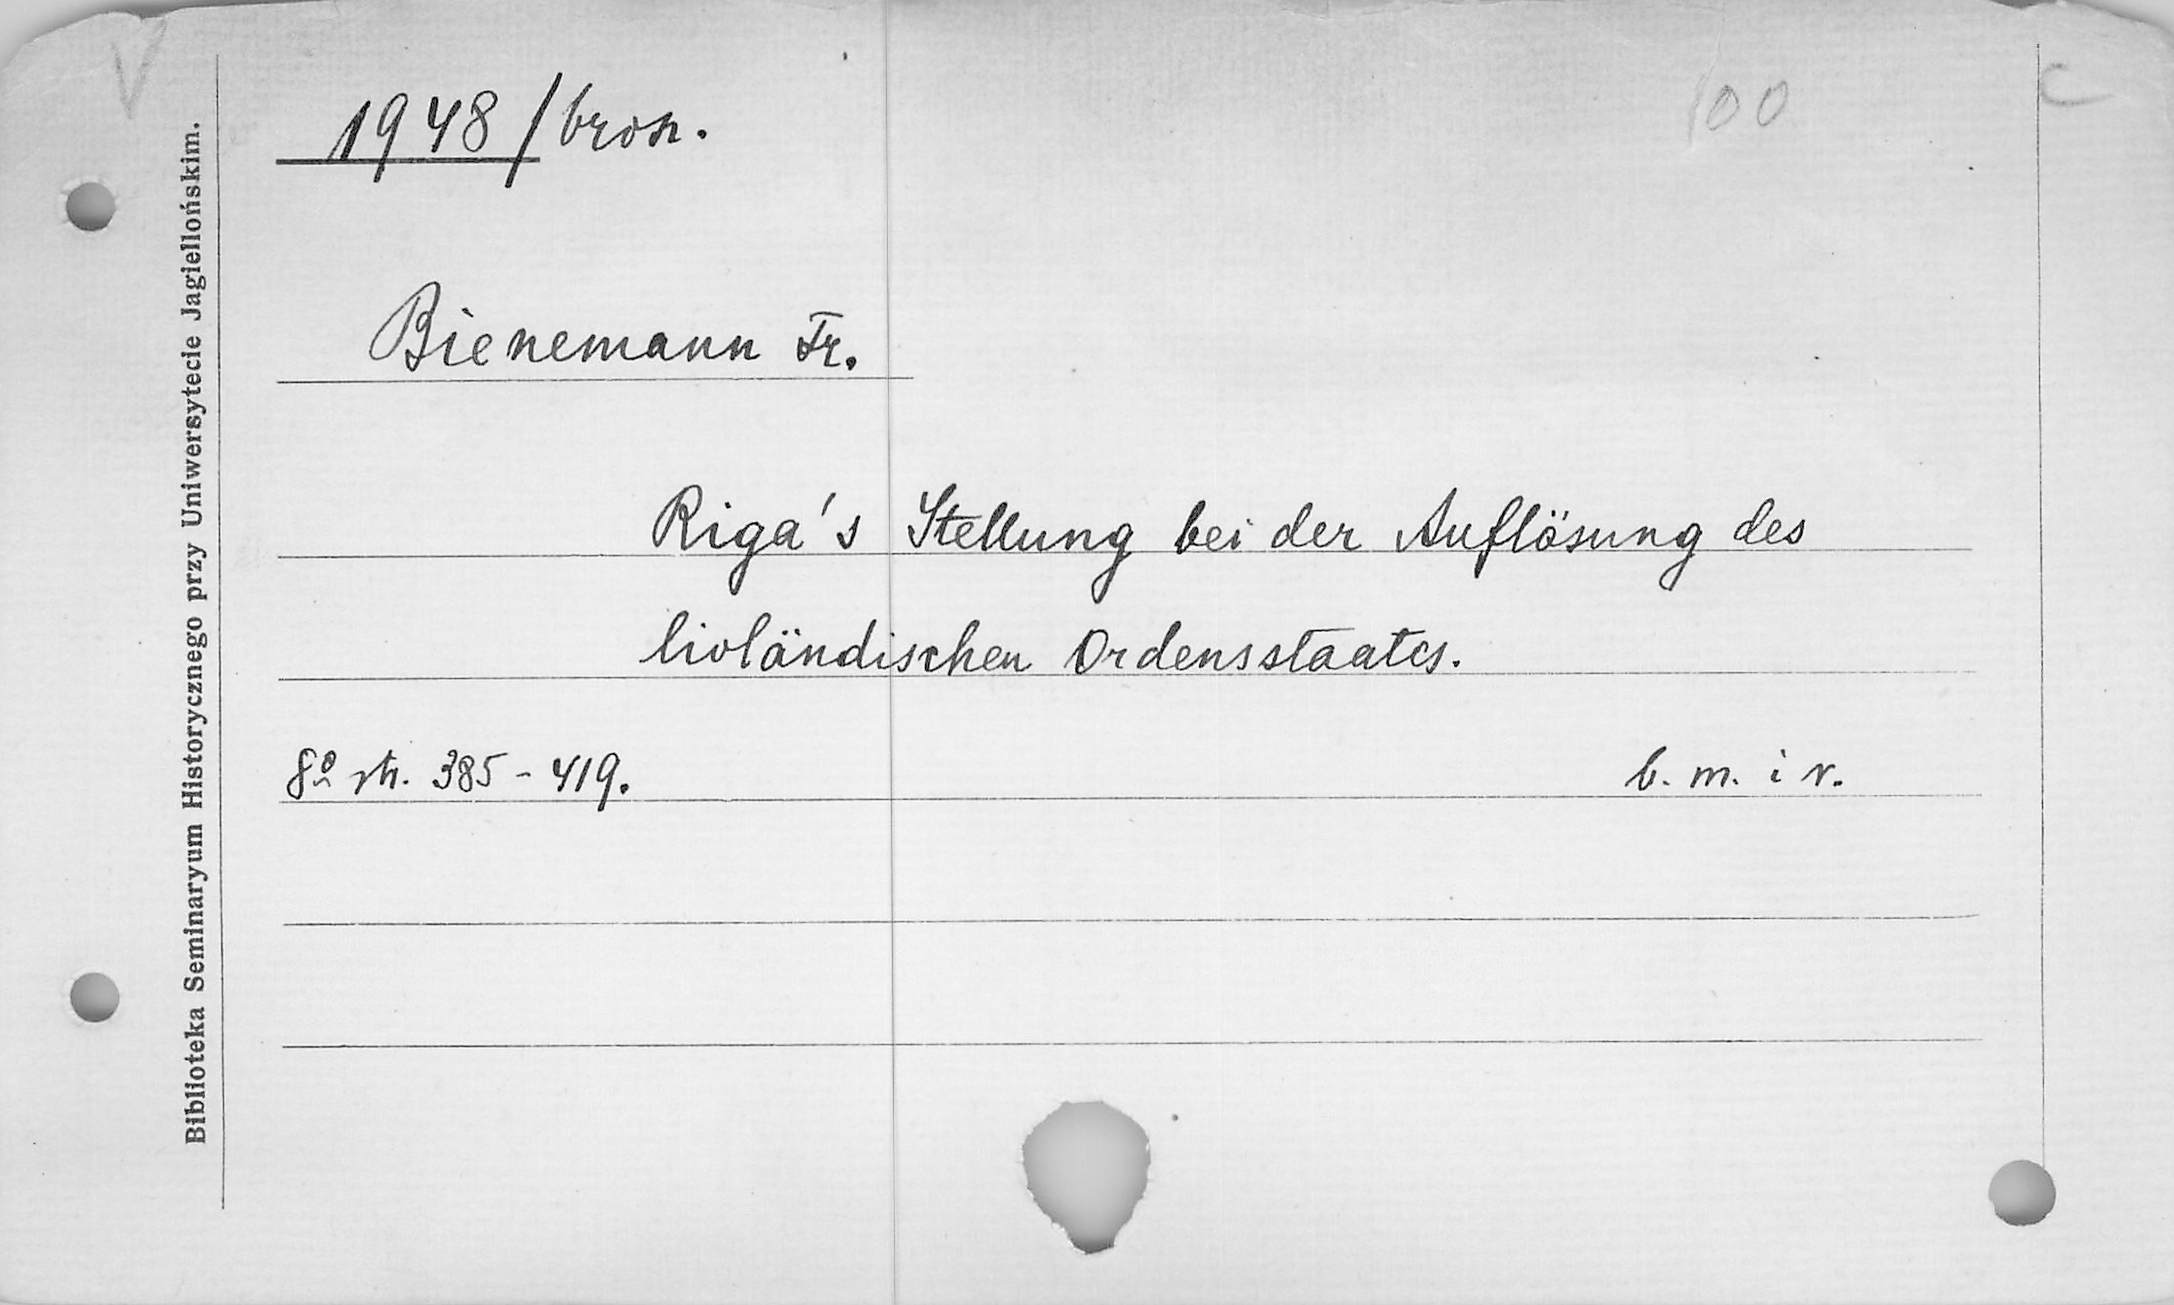 1948/brosz.
100
C
V
Bienemann Fr.
Riga's Stellung bei der Auflösung des
livländischen Ordensstaates.
8º str. 385-419.
b. m. i r.
Biblioteka Seminaryum Historycznego przy Uniwersytecie Jagiellońskim.